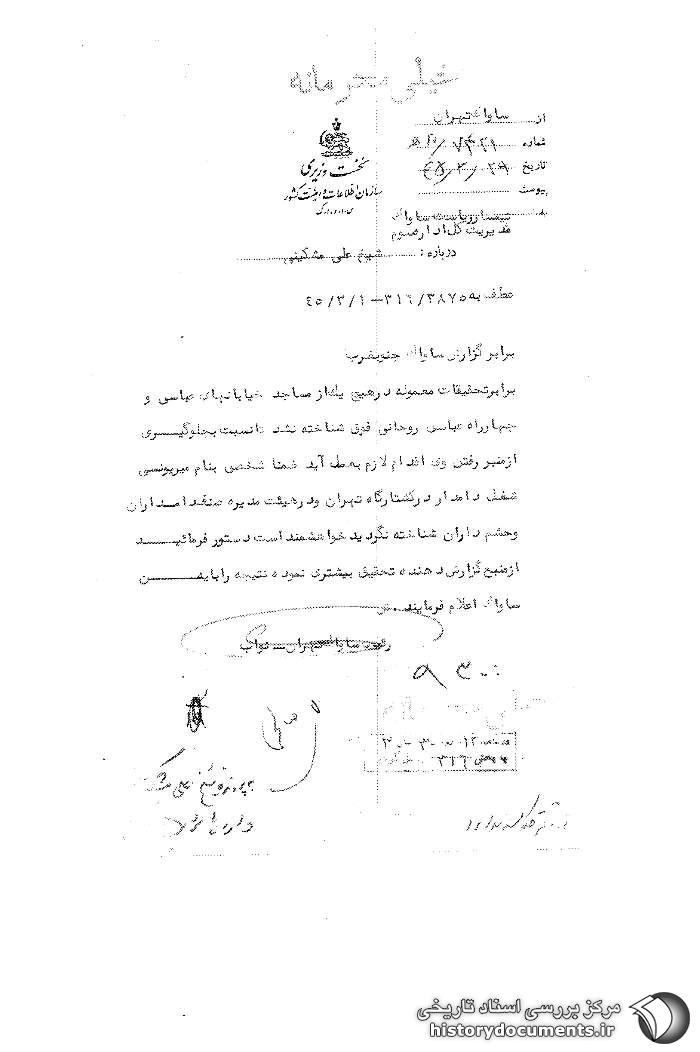 خیلی محرمانه
از ساواک تهران
شماره
تاریخ ۲۹/۳/۴۵
پیوست
نخست وزیری
سازمان اطلاعات و امنیت کشور
س.ا.و.ا.ک
به تیمسار ریاست ساواک
مدیریت کل اداره سوم
درباره : شیخ علی مشکینی
عطف به ۳۱٦/۳۸۷۵ – ٤٥/۳/۱
برابر گزارش ساواک جنوبغرب
برابر تحقیقات معموله در هیچ یک از مساجد خیابانهای عباسی و
چهارراه عباسی روحانی فوق شناخته نشد تا نسبت بجلوگیری
از منبر رفتن وی اقدام لازم بعمل آید ضمنا شخصی بنام میریونسی
شغل دامدار در کشتارگاه تهران و در هیئت مدیره صنف دامداران
وحشم داران شناخته نگردید خواهشمند است دستور فرمائید
از منبع گزارش دهنده تحقیق بیشتری نموده نتیجه را باین
ساواک اعلام فرمایند .
رئیس ساواک تهران – نواب
۳۱٦
به پرونده شیخ علی
مرکز بررسی اسناد تاریخی
historydocuments.ir